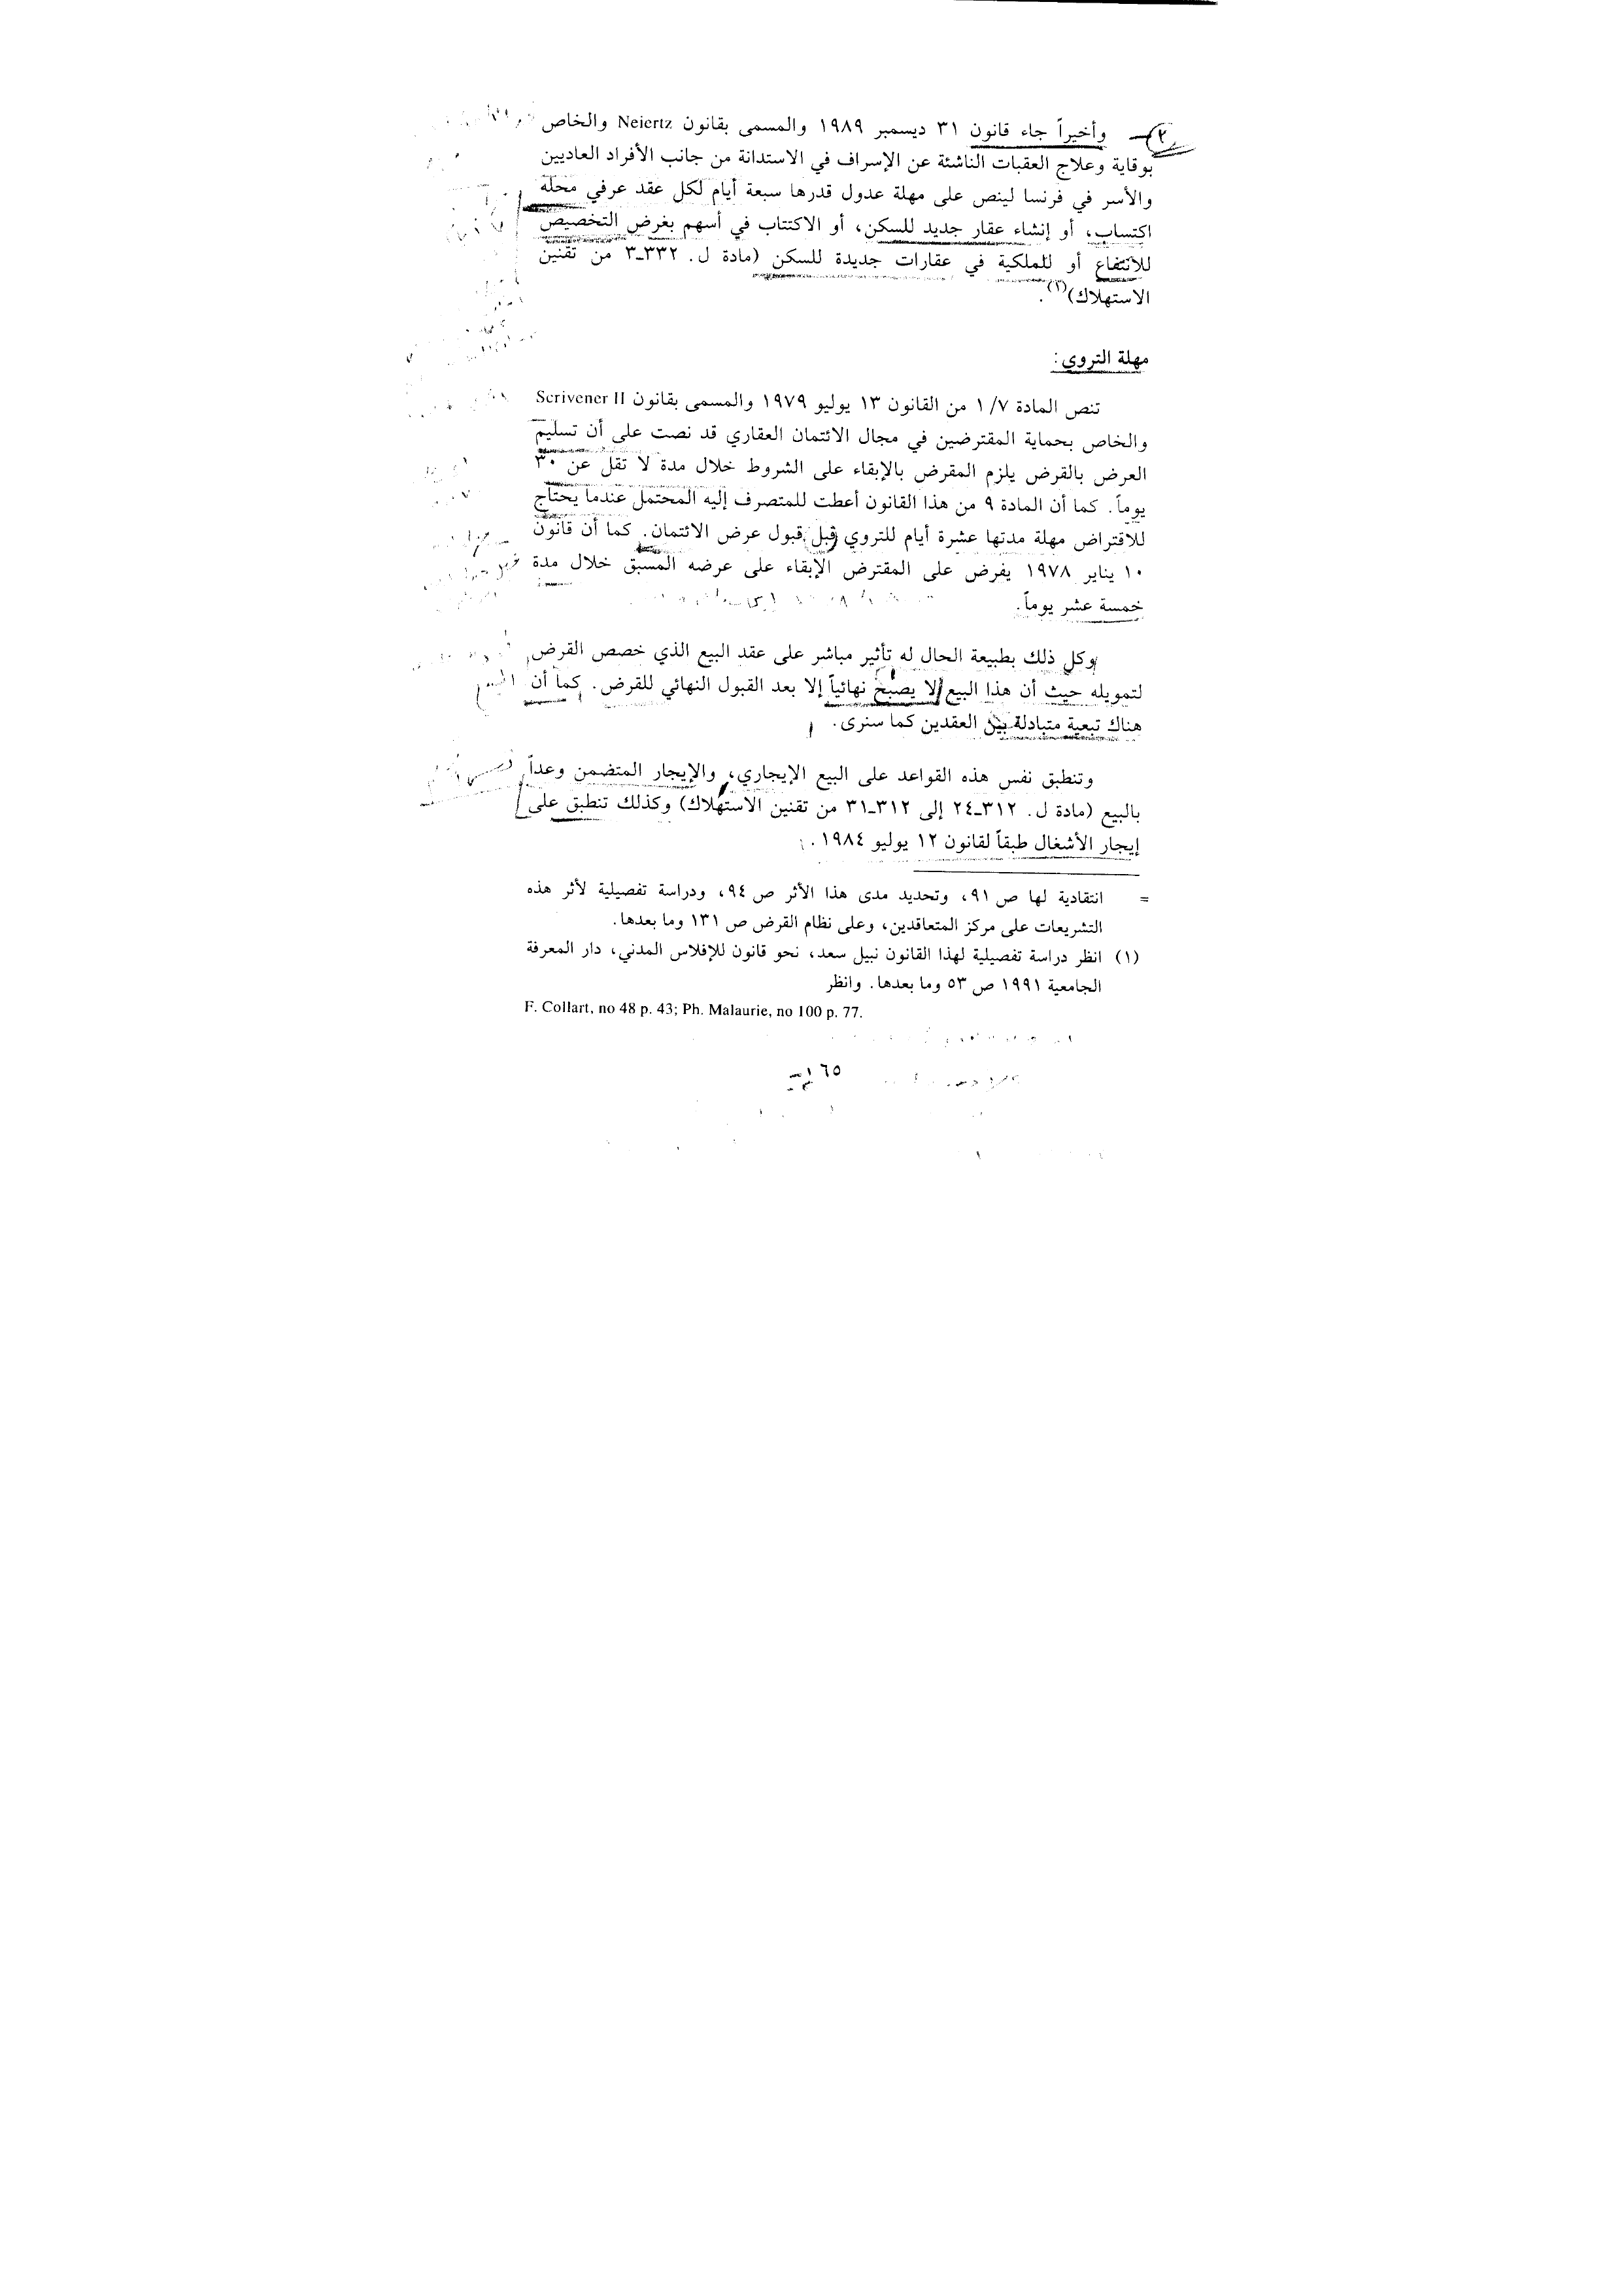 ٢ـ وأخيراً جاء قانون ٣١ ديسمبر ١٩٨٩ والمسمى بقانون Neiertz والخاص
بوقاية وعلاج العقبات الناشئة عن الإسراف في الاستدانة من جانب الأفراد العاديين
والأسر في فرنسا لينص على مهلة عدول قدرها سبعة أيام لكل عقد عرفي محله
اكتساب، أو إنشاء عقار جديد للسكن، أو الاكتتاب في أسهم بغرض التخصيص
للانتفاع أو للملكية في عقارات جديدة للسكن (مادة ل. ٣٣٢ـ٣ من تقنين
الاستهلاك)(١).
مهلة التروي:
تنص المادة ٧/ ١ من القانون ١٣ يوليو ١٩٧٩ والمسمى بقانون Scrivener II
والخاص بحماية المقترضين في مجال الائتمان العقاري قد نصت على أن تسليم
العرض بالقرض يلزم المقرض بالإبقاء على الشروط خلال مدة لا تقل عن ٣٠
يوماً. كما أن المادة ٩ من هذا القانون أعطت للمتصرف إليه المحتمل عندما يحتاج
للاقتراض مهلة مدتها عشرة أيام للتروي قبل قبول عرض الائتمان. كما أن قانون
١٠ يناير ١٩٧٨ يفرض على المقترض الإبقاء على عرضه المسبق خلال مدة
خمسة عشر يوماً.
وكل ذلك بطبيعة الحال له تأثير مباشر على عقد البيع الذي خصص القرض
لتمويله حيث أن هذا البيع لا يصبح نهائياً إلا بعد القبول النهائي للقرض. كما أن
هناك تبعية متبادلة بين العقدين كما سنرى.
وتنطبق نفس هذه القواعد على البيع الإيجاري، والإيجار المتضمن وعداً
بالبيع (مادة ل. ٣١٢ـ٢٤ إلى ٣١٢ـ٣١ من تقنين الاستهلاك) وكذلك تنطبق على
إيجار الأشغال طبقاً لقانون ١٢ يوليو ١٩٨٤.
= انتقادية لها ص ٩١، وتحديد مدى هذا الأثر ص ٩٤، ودراسة تفصيلية لأثر هذه
التشريعات على مركز المتعاقدين، وعلى نظام القرض ص ١٣١ وما بعدها.
(١) انظر دراسة تفصيلية لهذا القانون نبيل سعد، نحو قانون للإفلاس المدني، دار المعرفة
الجامعية ١٩٩١ ص ٥٣ وما بعدها. وانظر
F. Collart, no 48 p. 43; Ph. Malaurie, no 100 p. 77.
١٦٥